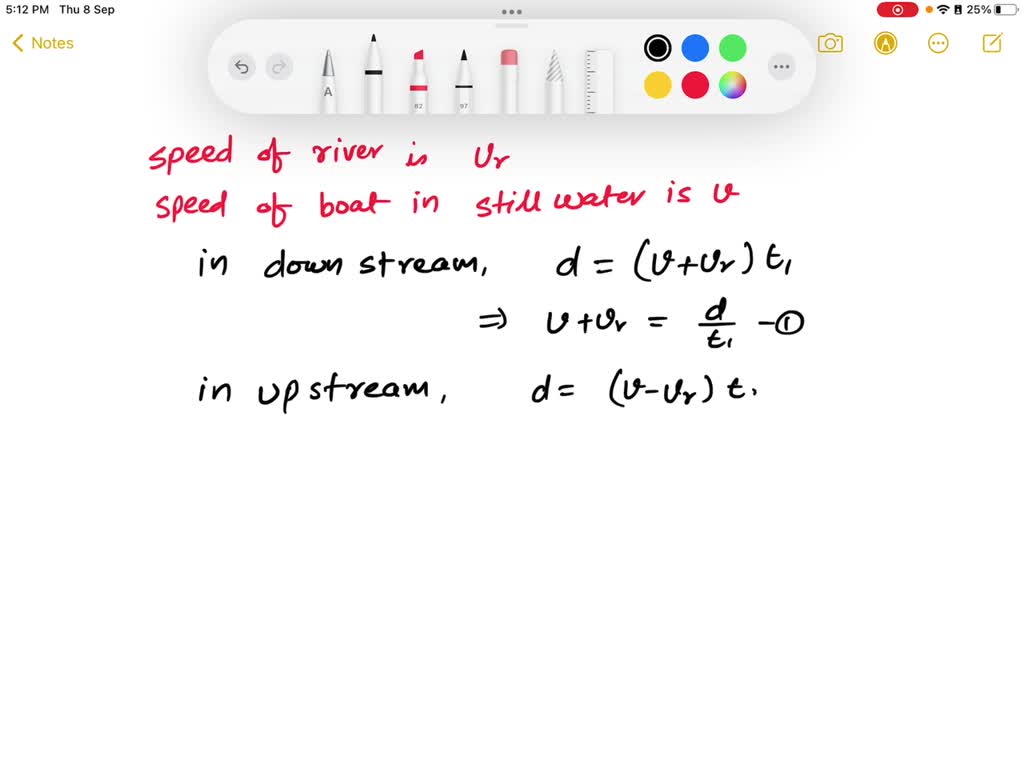 5:12 PM Thu 8 Sep
25%
Notes
A
82
97
speed of river is vr
speed of boat in still water is v
in down stream, d = (v+vr) t1
⇒ v+vr = d/t1 -①
in upstream, d = (v-vr) t.